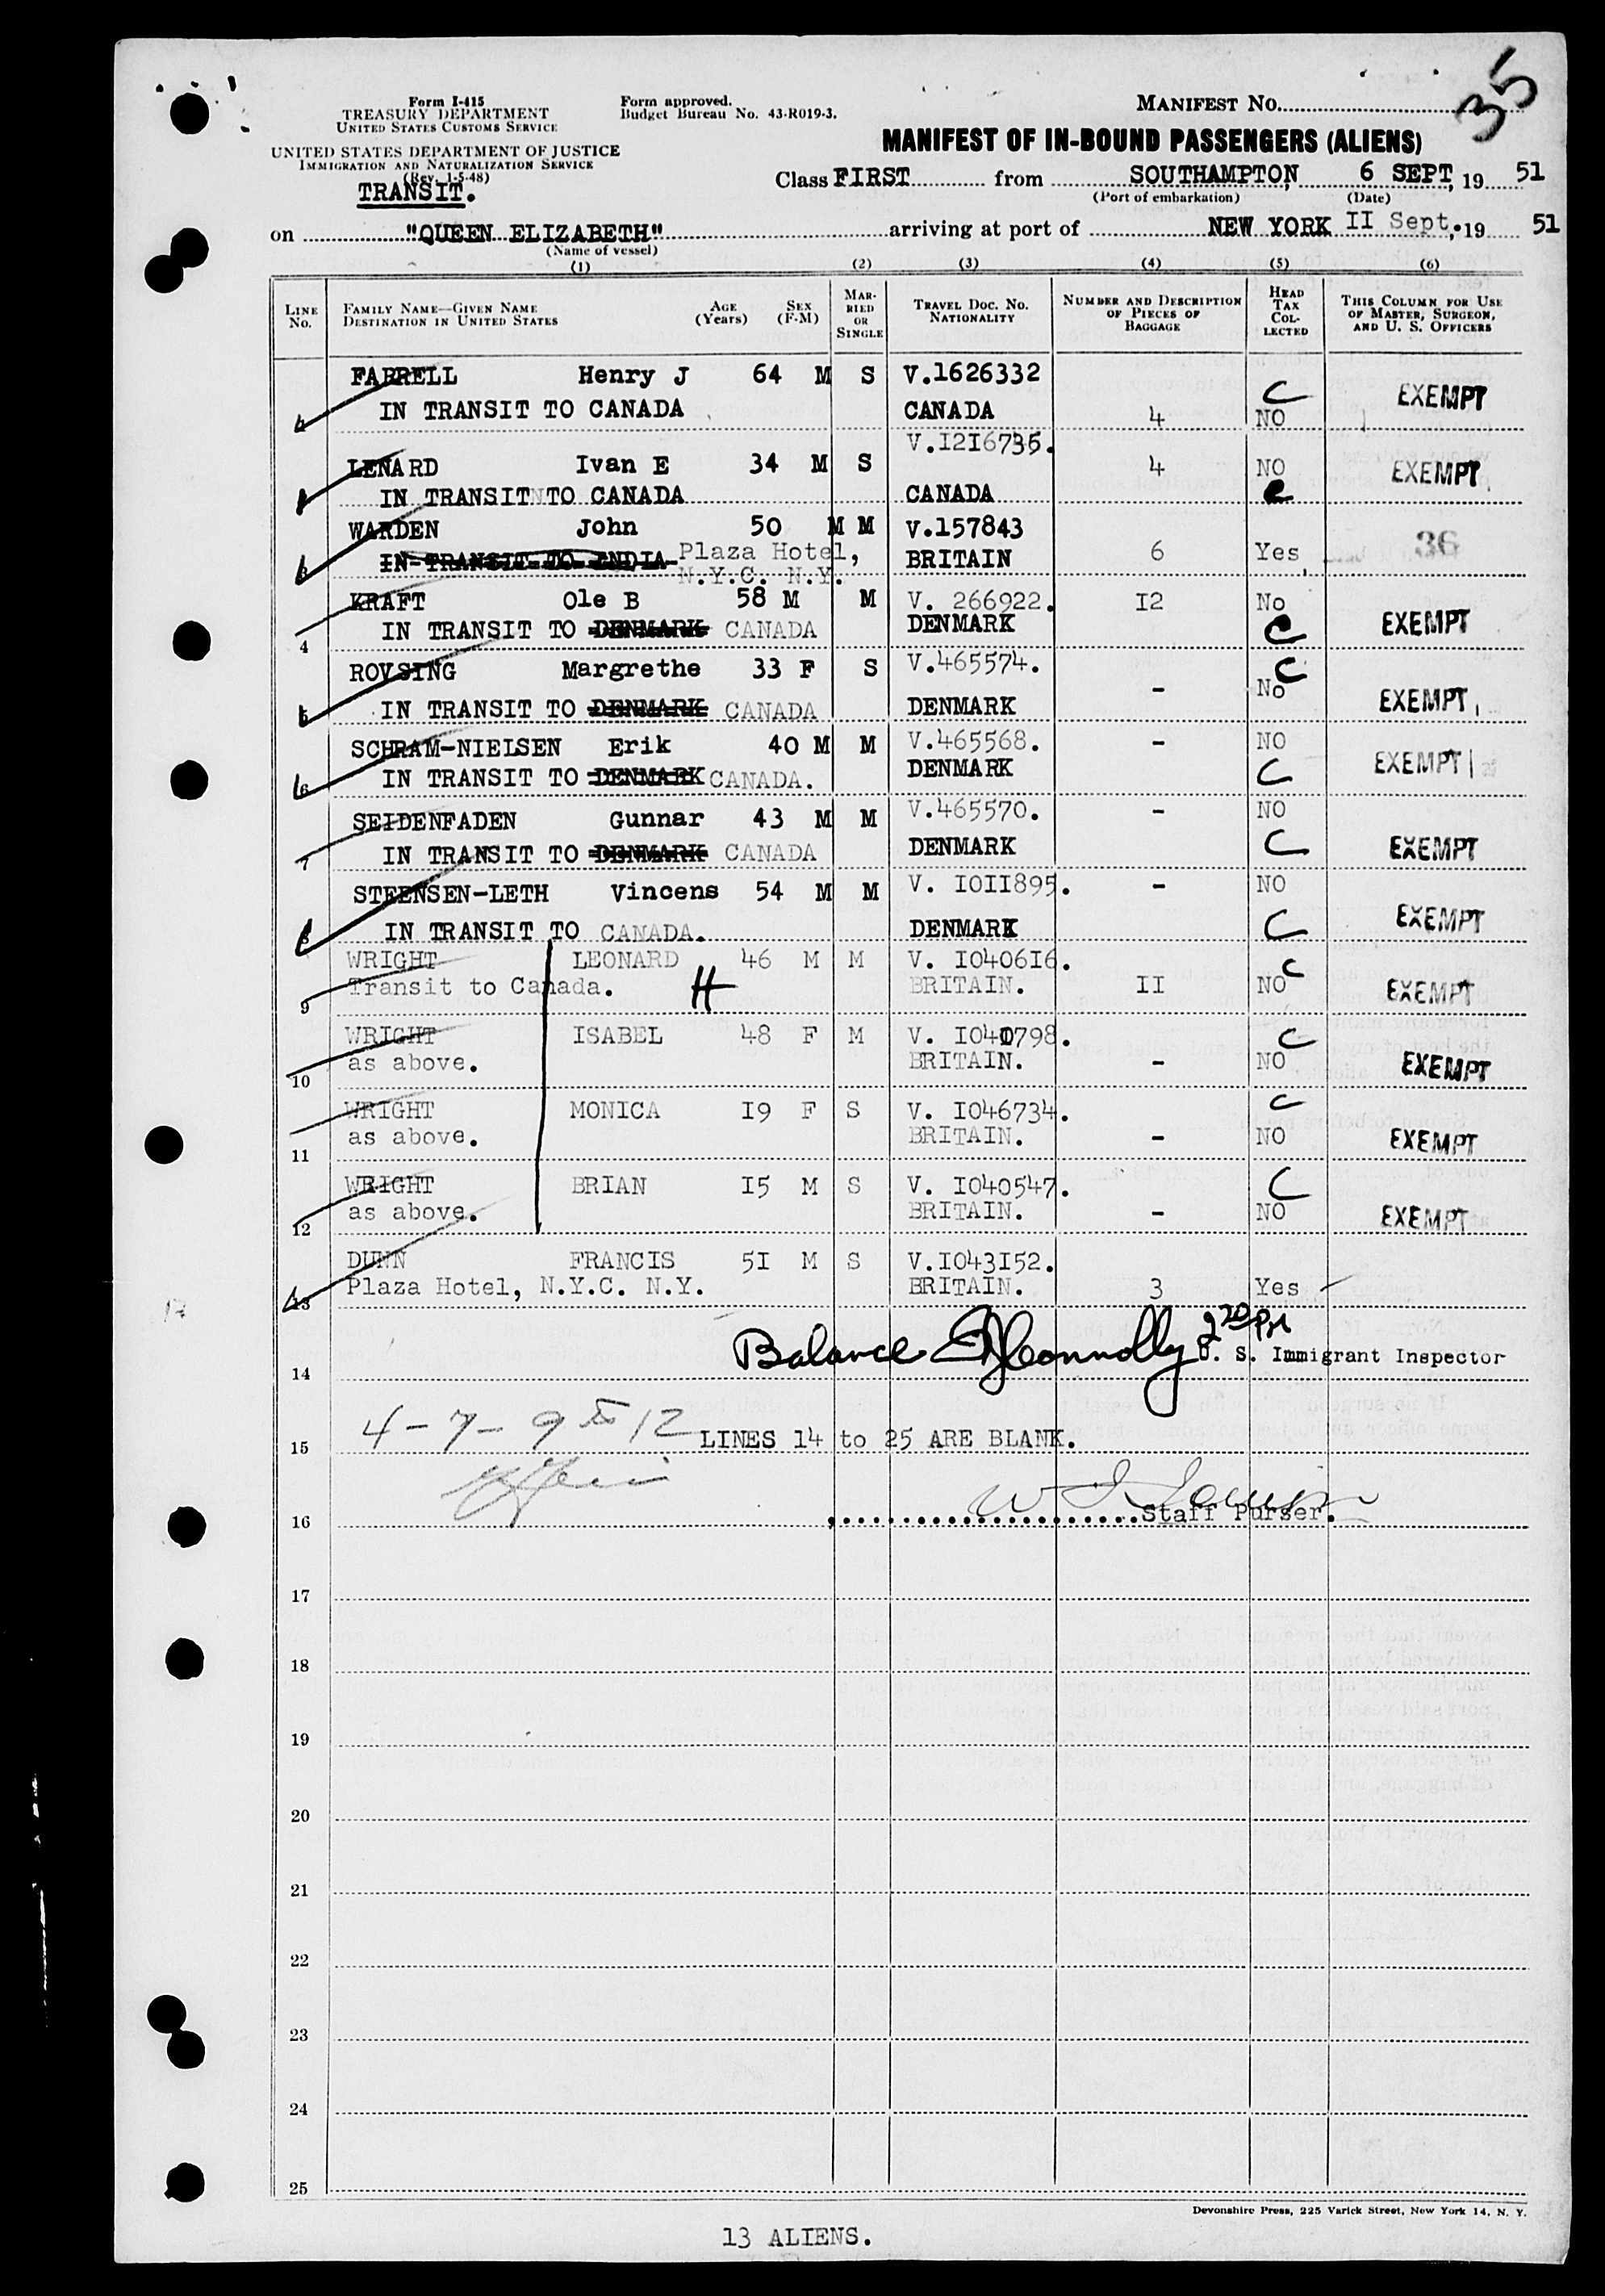 35
Form I-415
TREASURY DEPARTMENT
UNITED STATES CUSTOMS SERVICE
UNITED STATES DEPARTMENT OF JUSTICE
IMMIGRATION AND NATURALIZATION SERVICE
(Rev. 1-5-48)
TRANSIT.
Form approved.
Budget Bureau No. 43-R019-3.
MANIFEST No.
MANIFEST OF IN-BOUND PASSENGERS (ALIENS)
Class FIRST from SOUTHAMPTON, 6 SEPT, 19 51
(Port of embarkation) (Date)
on "QUEEN ELIZABETH" arriving at port of NEW YORK II Sept. 19 51
(Name of vessel)
(1) (2) (3) (4) (5) (6)
LINE No. FAMILY NAME—GIVEN NAME DESTINATION IN UNITED STATES AGE (Years) SEX (F-M) MARRIED OR SINGLE TRAVEL DOC. NO. NATIONALITY NUMBER AND DESCRIPTION OF PIECES OF BAGGAGE HEAD TAX COLLECTED THIS COLUMN FOR USE OF MASTER, SURGEON, AND U. S. OFFICERS
FARRELL Henry J 64 M S V.1626332 C EXEMPT
IN TRANSIT TO CANADA CANADA 4 NO
LENARD Ivan E 34 M S V.I2I6735. 4 NO EXEMPT
IN TRANSIT TO CANADA CANADA C
WARDEN John 50 M M V.157843
3 IN TRANSIT TO INDIA Plaza Hotel, BRITAIN 6 Yes 36
N.Y.C. N.Y.
KRAFT Ole B 58 M M V. 266922. I2 No EXEMPT
4 IN TRANSIT TO DENMARK CANADA DENMARK C
ROVSING Margrethe 33 F S V.465574. - No C
5 IN TRANSIT TO DENMARK CANADA DENMARK EXEMPT
SCHRAM-NIELSEN Erik 40 M M V.465568. - NO
6 IN TRANSIT TO DENMARK CANADA. DENMARK C EXEMPT
SEIDENFADEN Gunnar 43 M M V.465570. - NO
7 IN TRANSIT TO DENMARK CANADA DENMARK C EXEMPT
STEENSEN-LETH Vincens 54 M M V. IOII895. - NO
8 IN TRANSIT TO CANADA. DENMARK C EXEMPT
WRIGHT LEONARD 46 M M V. I0406I6. C
9 Transit to Canada. H BRITAIN. II NO EXEMPT
WRIGHT ISABEL 48 F M V. I040798. C
10 as above. BRITAIN. - NO EXEMPT
WRIGHT MONICA I9 F S V. I046734. C
11 as above. BRITAIN. - NO EXEMPT
WRIGHT BRIAN I5 M S V. I040547. C
12 as above. BRITAIN. - NO EXEMPT
DUNN FRANCIS 5I M S V.I043I52.
13 Plaza Hotel, N.Y.C. N.Y. BRITAIN. 3 Yes
14 Balance Connolly 2 20 PM U. S. Immigrant Inspector
4-7-9 to 12
15 LINES 14 to 25 ARE BLANK.
16 Staff Purser.
17
18
19
20
21
22
23
24
25
Devonshire Press, 225 Varick Street, New York 14, N. Y.
13 ALIENS.